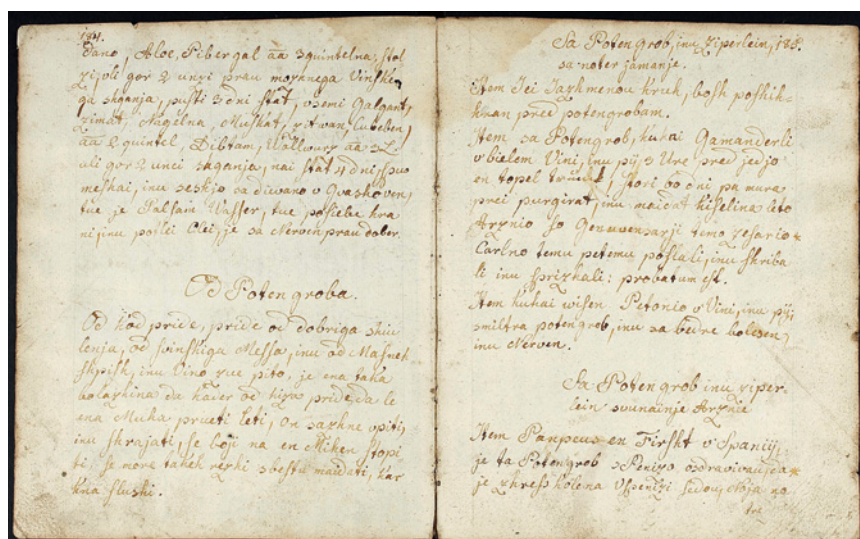 184.
dano, Aloe, Pibergal āā 3 quintelna, stol
zi, vli gor 2 unzi prau mozhnega Vinske
ga shganja, pusti 3 dni stat, vsemi Galgant,
zimat, Nagelna, Muskat, zitwan, Cubeben,
āā 2 quintel, Dibtam, Wallwurz āā 3
uli gor 2 unci shganja, nai stat 4 dni,
meshai, inu
tue je Balsam Wasser, tue posebe hra
ni, inu poslei Olei, je sa Nerven prau dober.
Od Potengroba.
Od kod pride, pride od dobriga shiu
lenja, od svinskiga Messa, inu od Masneh
shpish, inu Vino pito, je ena taka
bolezhina da kader od pride, da le
ena Muha, prueti leti, on sazhne vpiti,
inu skrajati, se boji na en stopi
ti, se more takeh rezhi sbestu, kar
kna slushi.
Sa Potengrob, inu Ziperlein, 185.
sa noter jamanje.
Item Jei Jazhmenou kruh, bosh
pred potengrobam.
Item sa Potengrob, kuhai Gamanderli
v bielem Vini, inu pij 3 Ure pred jedjo
en topel, stori 60 dni pa mura
prei purgirat, inu kiselina leto
Arznio so Genuuensarji temo zesario
Carlno temu petemu poslali, inu skriba
li inu: probatum est.
Item kuhai wisen Petonio v Vini, inu pij,
smiltra potengrob, inu sa bedre bolesen,
inu Nerven.
Sa Potengrob inu ziper-
lein svunainje Arznie
Item en Firsht v Spanii,
je ta Potengrob
je zhress kolena, Noja no
tre